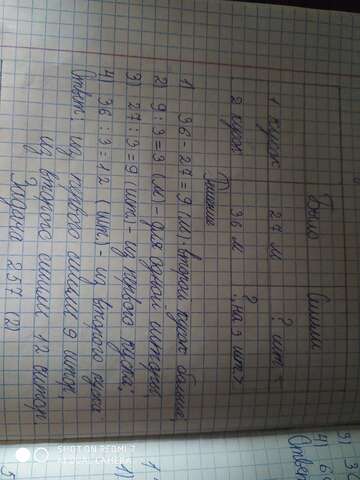 Было Сшили
1 кусок 27 м ? шт
2 кусок 36 м ? на 3 шт >
Решение
1 36 - 27 = 9 (м). второй кусок больше;
2) 9 : 3 = 3 (м) - для одной шторы;
3) 27 : 3 = 9 (шт) - из первого куска;
4) 36 : 3 = 12 (шт) - из второго куска
Ответ: из первого сшили 9 штор,
из второго сшили 12 штор.
Задача 257 (2)
Ответ
SHOT ON REDMI 7
AI DUAL CAMERA